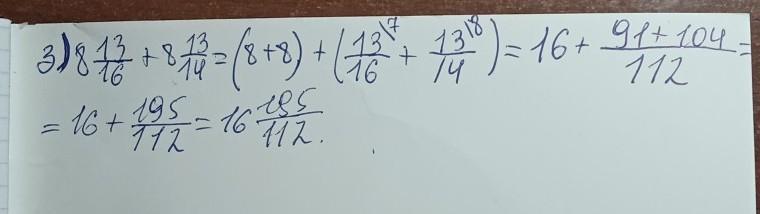 3) 8 13/16 + 8 13/14 = (8+8) + (13\7/16 + 13\8/14) = 16 + 91+104/112 =
= 16 + 195/112 = 16 195/112.